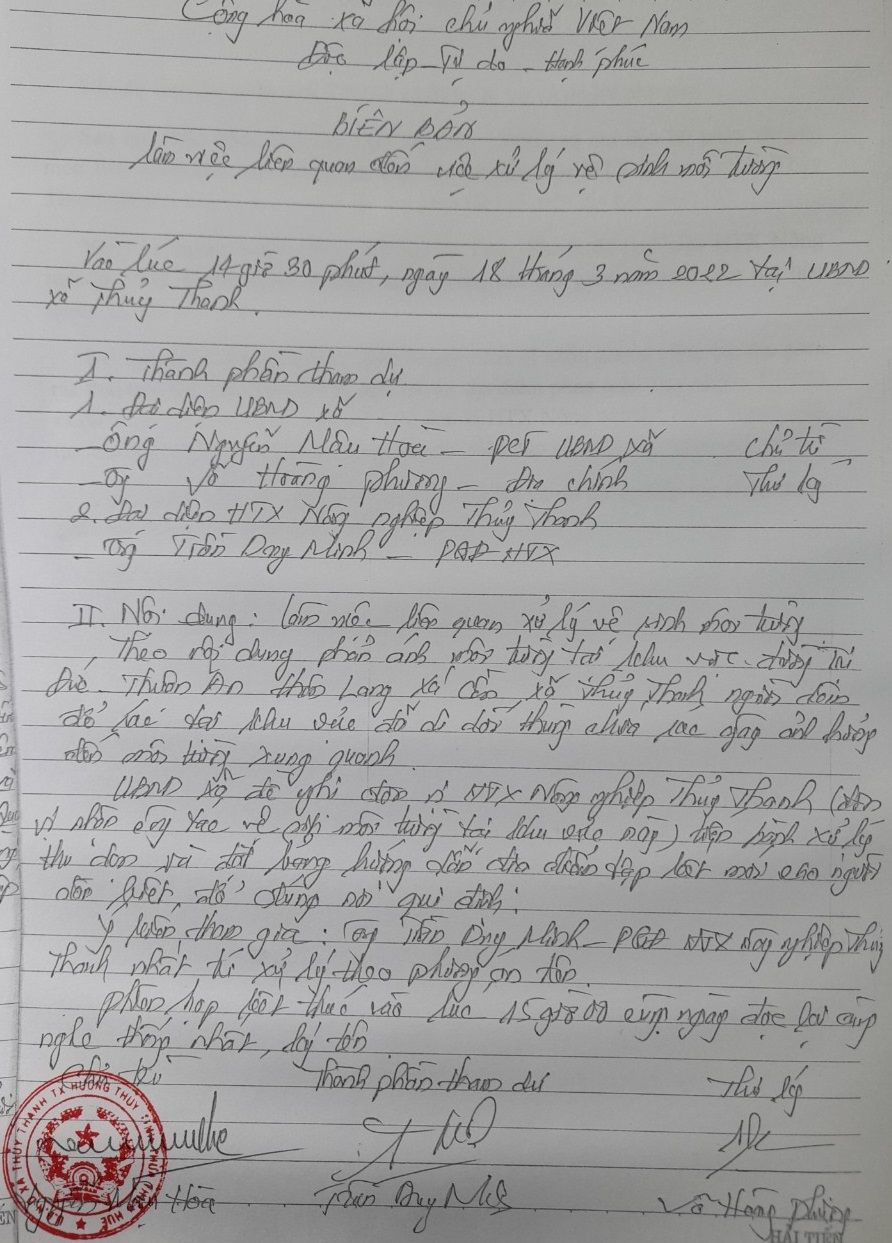 Cộng hòa xã hội chủ nghĩa Việt Nam
Độc lập - Tự do - Hạnh phúc
BIÊN BẢN
làm việc liên quan đến việc xử lý vệ sinh môi trường
Vào lúc 14 giờ 30 phút, ngày 18 tháng 3 năm 2022 tại UBND
xã Thủy Thanh.
I. Thành phần tham dự
1. Đại diện UBND xã
- Ông Nguyễn Mậu Hòa - PCT UBND xã Chủ trì
- Ông Võ Hoàng Phương - Địa chính Thư ký
2. Đại diện HTX Nông nghiệp Thủy Thanh
- Ông Trần Duy Minh - PGĐ HTX
II. Nội dung: làm việc liên quan xử lý vệ sinh môi trường
Theo nội dung phản ánh môi trường tại khu vực đường
Thuận An thôn Lang Xá Cồn xã Thủy Thanh, người dân
đổ rác tại khu vực thùng chứa rác gây ảnh hưởng
đến môi trường xung quanh.
UBND xã đề nghị đơn vị HTX Nông nghiệp Thủy Thanh (đơn
vị nhận môi trường tại khu vực này) tiến hành xử lý
thu dọn và đặt bảng hướng dẫn cho người
dân biết, đổ đúng nơi qui định.
Ý kiến tham gia: Ông Trần Duy Minh - PGĐ HTX Nông nghiệp Thủy
Thanh nhất trí xử lý theo phương án trên.
Phiên họp kết thúc vào lúc 15 giờ 00 cùng ngày đọc lại cùng
nghe thống nhất, ký tên.
Chủ trì Thành phần tham dự Thư ký
U.B.N.D XÃ THỦY THANH TX HƯƠNG THỦY TỈNH THỪA THIÊN HUẾ
Nguyễn Mậu Hòa Trần Duy Minh Võ Hoàng Phương
HẢI TIẾN